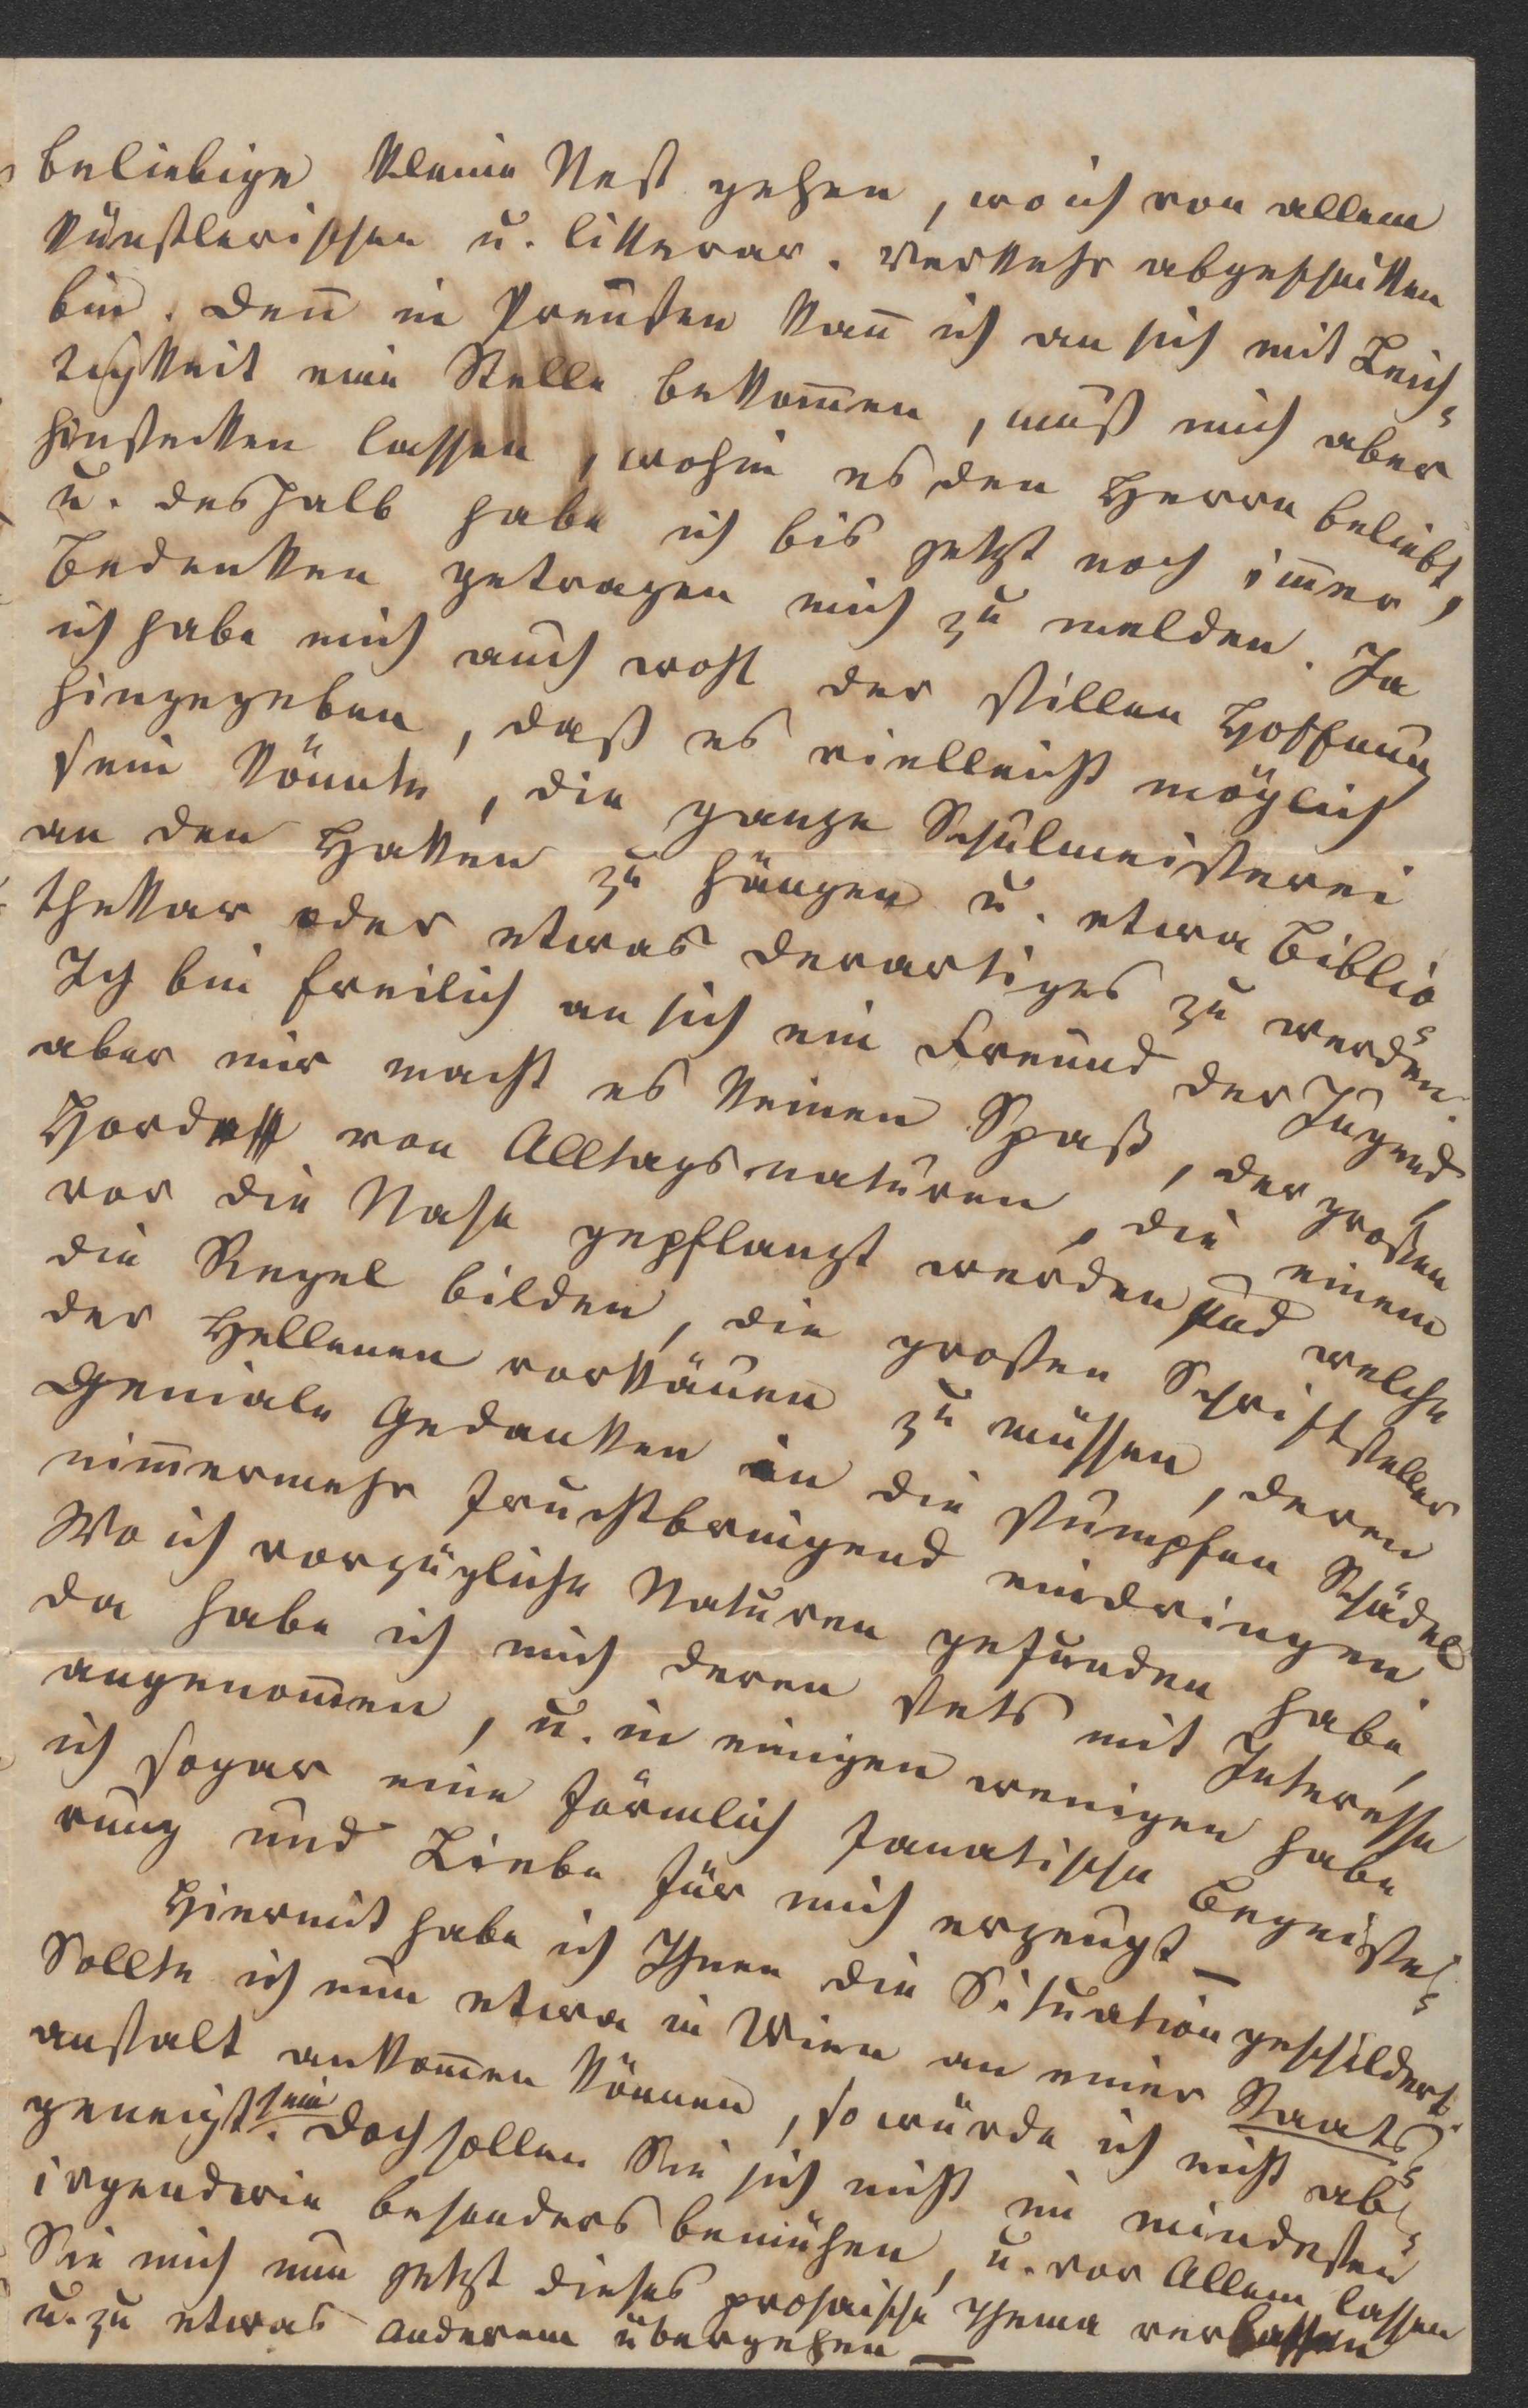 beliebige kleine Nest gehen, wo ich von allem
künstlerischen u. litterar. Verkehr abgeschnitten
bin. Deñ in Preußen kañ ich an sich mit Leich-
tigkeit eine Stelle bekom̄en, muß mich aber
hinstecken lassen, wohin es den Herrn beliebt,
u. deshalb habe ich bis jetzt noch im̄er
Bedenken getragen mich zu melden. Ja
ich habe mich auch wohl der stillen Hoffnung
hingegeben, daß es vielleicht möglich
sein könnte, die ganze Schulmeisterei
an den Haken zu hängen u. etwa Biblio-
thekar oder etwas derartiges zu werden.
Ich bin freilich an sich ein Freund der Jugend,
aber mir macht es keinen Spaß, der großen
Horde von Alltagsnaturen, die einem
vor die Nase gepflanzt werden und welche
die Regel bilden, die großen Schriftsteller
der Hellenen vorkäuen zu müssen, deren
geniale Gedanken in die stumpfen Schädel
nim̄ermehr fruchtbringend eindringen.
Wo ich vorzügliche Naturen gefunden habe,
da habe ich mich deren stets mit Interesse
angenom̄en, u. in einigen wenigen habe
ich sogar eine förmlich fanatische Begeiste-
rung und Liebe für mich erzeugt —
Hiermit habe ich Ihnen die Situation geschildert.
Sollte ich nun etwa in Wien an einer Staats-
anstalt ankom̄en können, so würde ich nicht ab-
geneigt sein. Doch sollen Sie sich nicht im mindesten
irgendwie besonders bemühen, u. vor Allem lassen
Sie mich nun jetzt dieses prosaische Thema verlassen
u. zu etwas anderem übergehen —